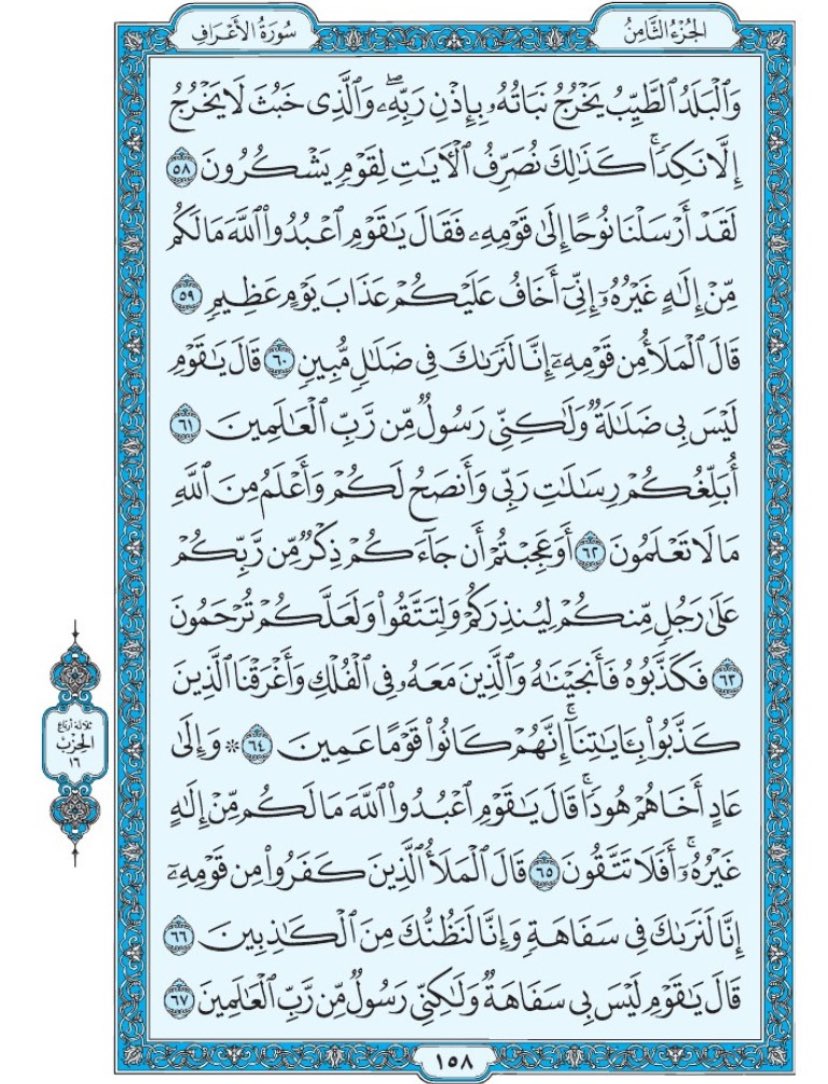 الجُزْءُ الثَّامِنُ
سُورَةُ الأَعْرَافِ
وَٱلْبَلَدُ ٱلطَّيِّبُ يَخْرُجُ نَبَاتُهُۥ بِإِذْنِ رَبِّهِۦۖ وَٱلَّذِى خَبُثَ لَا يَخْرُجُ
إِلَّا نَكِدًاۚ كَذَٰلِكَ نُصَرِّفُ ٱلْأَيَٰتِ لِقَوْمٍ يَشْكُرُونَ ٥٨
لَقَدْ أَرْسَلْنَا نُوحًا إِلَىٰ قَوْمِهِۦ فَقَالَ يَٰقَوْمِ ٱعْبُدُوا۟ ٱللَّهَ مَا لَكُم
مِّنْ إِلَٰهٍ غَيْرُهُۥٓ إِنِّىٓ أَخَافُ عَلَيْكُمْ عَذَابَ يَوْمٍ عَظِيمٍ ٥٩
قَالَ ٱلْمَلَأُ مِن قَوْمِهِۦٓ إِنَّا لَنَرَىٰكَ فِى ضَلَٰلٍ مُّبِينٍ ٦٠ قَالَ يَٰقَوْمِ
لَيْسَ بِى ضَلَٰلَةٌ وَلَٰكِنِّى رَسُولٌ مِّن رَّبِّ ٱلْعَٰلَمِينَ ٦١
أُبَلِّغُكُمْ رِسَٰلَٰتِ رَبِّى وَأَنصَحُ لَكُمْ وَأَعْلَمُ مِنَ ٱللَّهِ
مَا لَا تَعْلَمُونَ ٦٢ أَوَعَجِبْتُمْ أَن جَآءَكُمْ ذِكْرٌ مِّن رَّبِّكُمْ
عَلَىٰ رَجُلٍ مِّنكُمْ لِيُنذِرَكُمْ وَلِتَتَّقُوا۟ وَلَعَلَّكُمْ تُرْحَمُونَ
٦٣ فَكَذَّبُوهُ فَأَنجَيْنَٰهُ وَٱلَّذِينَ مَعَهُۥ فِى ٱلْفُلْكِ وَأَغْرَقْنَا ٱلَّذِينَ
كَذَّبُوا۟ بِـَٔايَٰتِنَآۚ إِنَّهُمْ كَانُوا۟ قَوْمًا عَمِينَ ٦٤ ۞ وَإِلَىٰ
عَادٍ أَخَاهُمْ هُودًاۚ قَالَ يَٰقَوْمِ ٱعْبُدُوا۟ ٱللَّهَ مَا لَكُم مِّنْ إِلَٰهٍ
غَيْرُهُۥٓۚ أَفَلَا تَتَّقُونَ ٦٥ قَالَ ٱلْمَلَأُ ٱلَّذِينَ كَفَرُوا۟ مِن قَوْمِهِۦٓ
إِنَّا لَنَرَىٰكَ فِى سَفَاهَةٍ وَإِنَّا لَنَظُنُّكَ مِنَ ٱلْكَٰذِبِينَ ٦٦
قَالَ يَٰقَوْمِ لَيْسَ بِى سَفَاهَةٌ وَلَٰكِنِّى رَسُولٌ مِّن رَّبِّ ٱلْعَٰلَمِينَ ٦٧
ثلاثة أرباع
الحزب
١٦
١٥٨